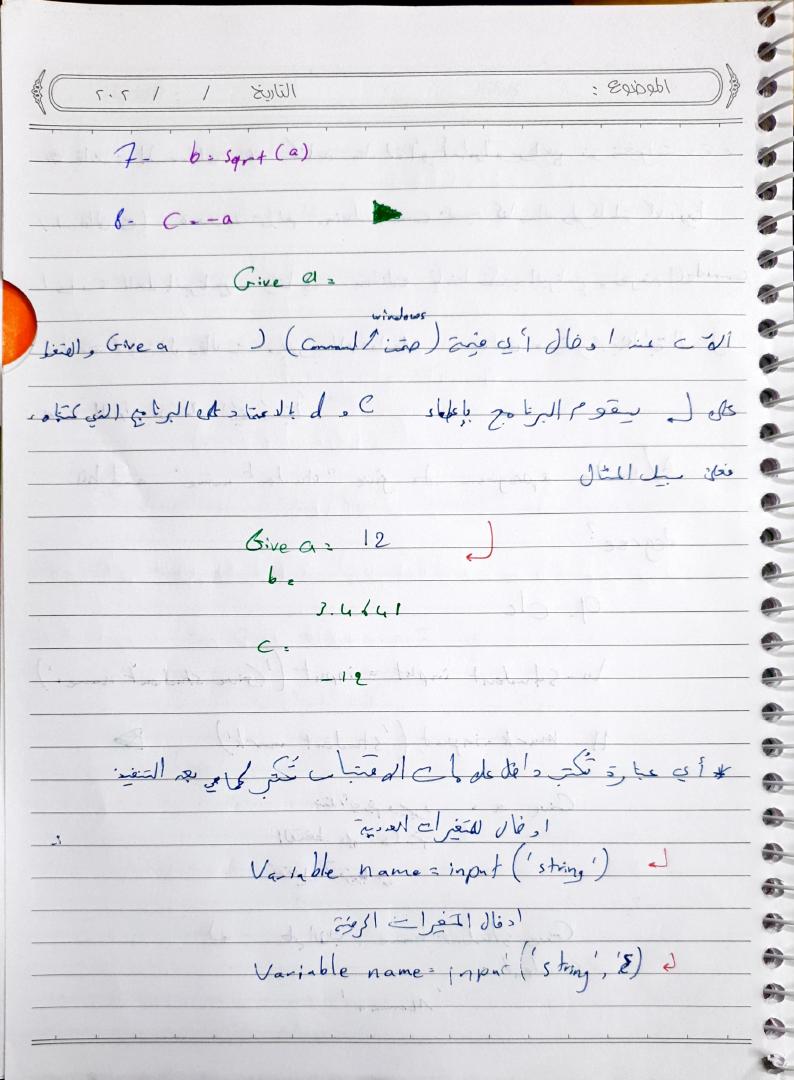 الموضوع : التاريخ / / ٢٠٢
7- b= sqrt(a)
8- c=-a
Give a =
windows
الآن عند ادخال أي قيمة (ضمن command) لـ Give a والضغط
على ↵ سيقوم البرنامج بإعطاء c و d بالاعتماد على البرنامج الذي كتبناه،
فعلى سبيل المثال
Give a = 12 ↵
b=
3.4641
c=
-12
* أي عبارة تُكتب داخل علامات الاقتباس تُكتب كما هي بعد التنفيذ
ادخال المتغيرات العددية
Variable name = input ('string') ↵
ادخال المتغيرات الرمزية
Variable name = input ('string',